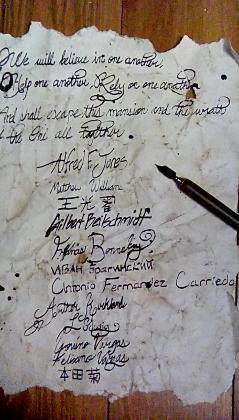 We will believe in one another,
Help one another, Rely on one another
And shall escape this mansion and the wrath
of the Oni all together.
Alfred F. Jones
Matthew Williams
王耀
Gilbert Beilschmidt
Francis Bonnefoy
Иван Брагинский
Antonio Fernandez Carriedo
Arthur Kirkland
Ludwig
Lovino Vargas
Feliciano Vargas
本田菊